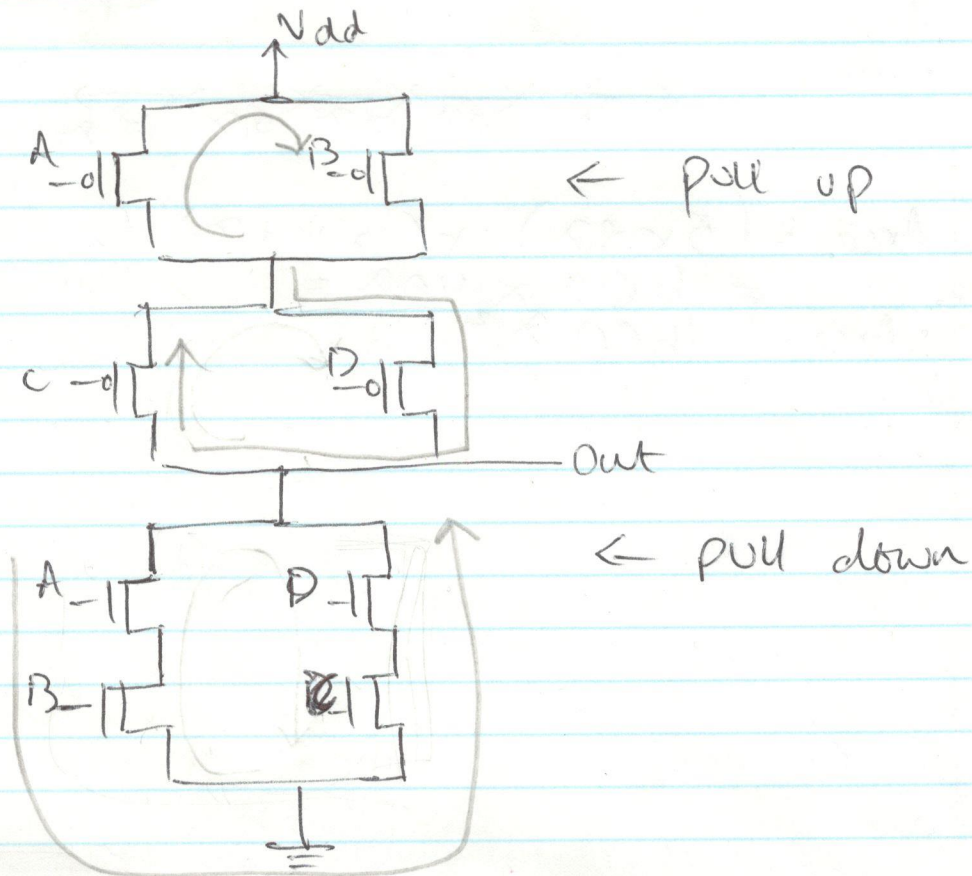 Vdd
A B ← pull up
C D Out
← pull down
A D
B C